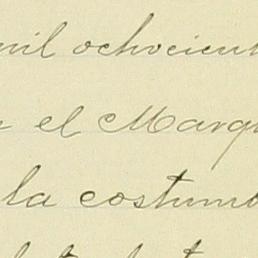 mil ochocient
el Marqu
la costumb